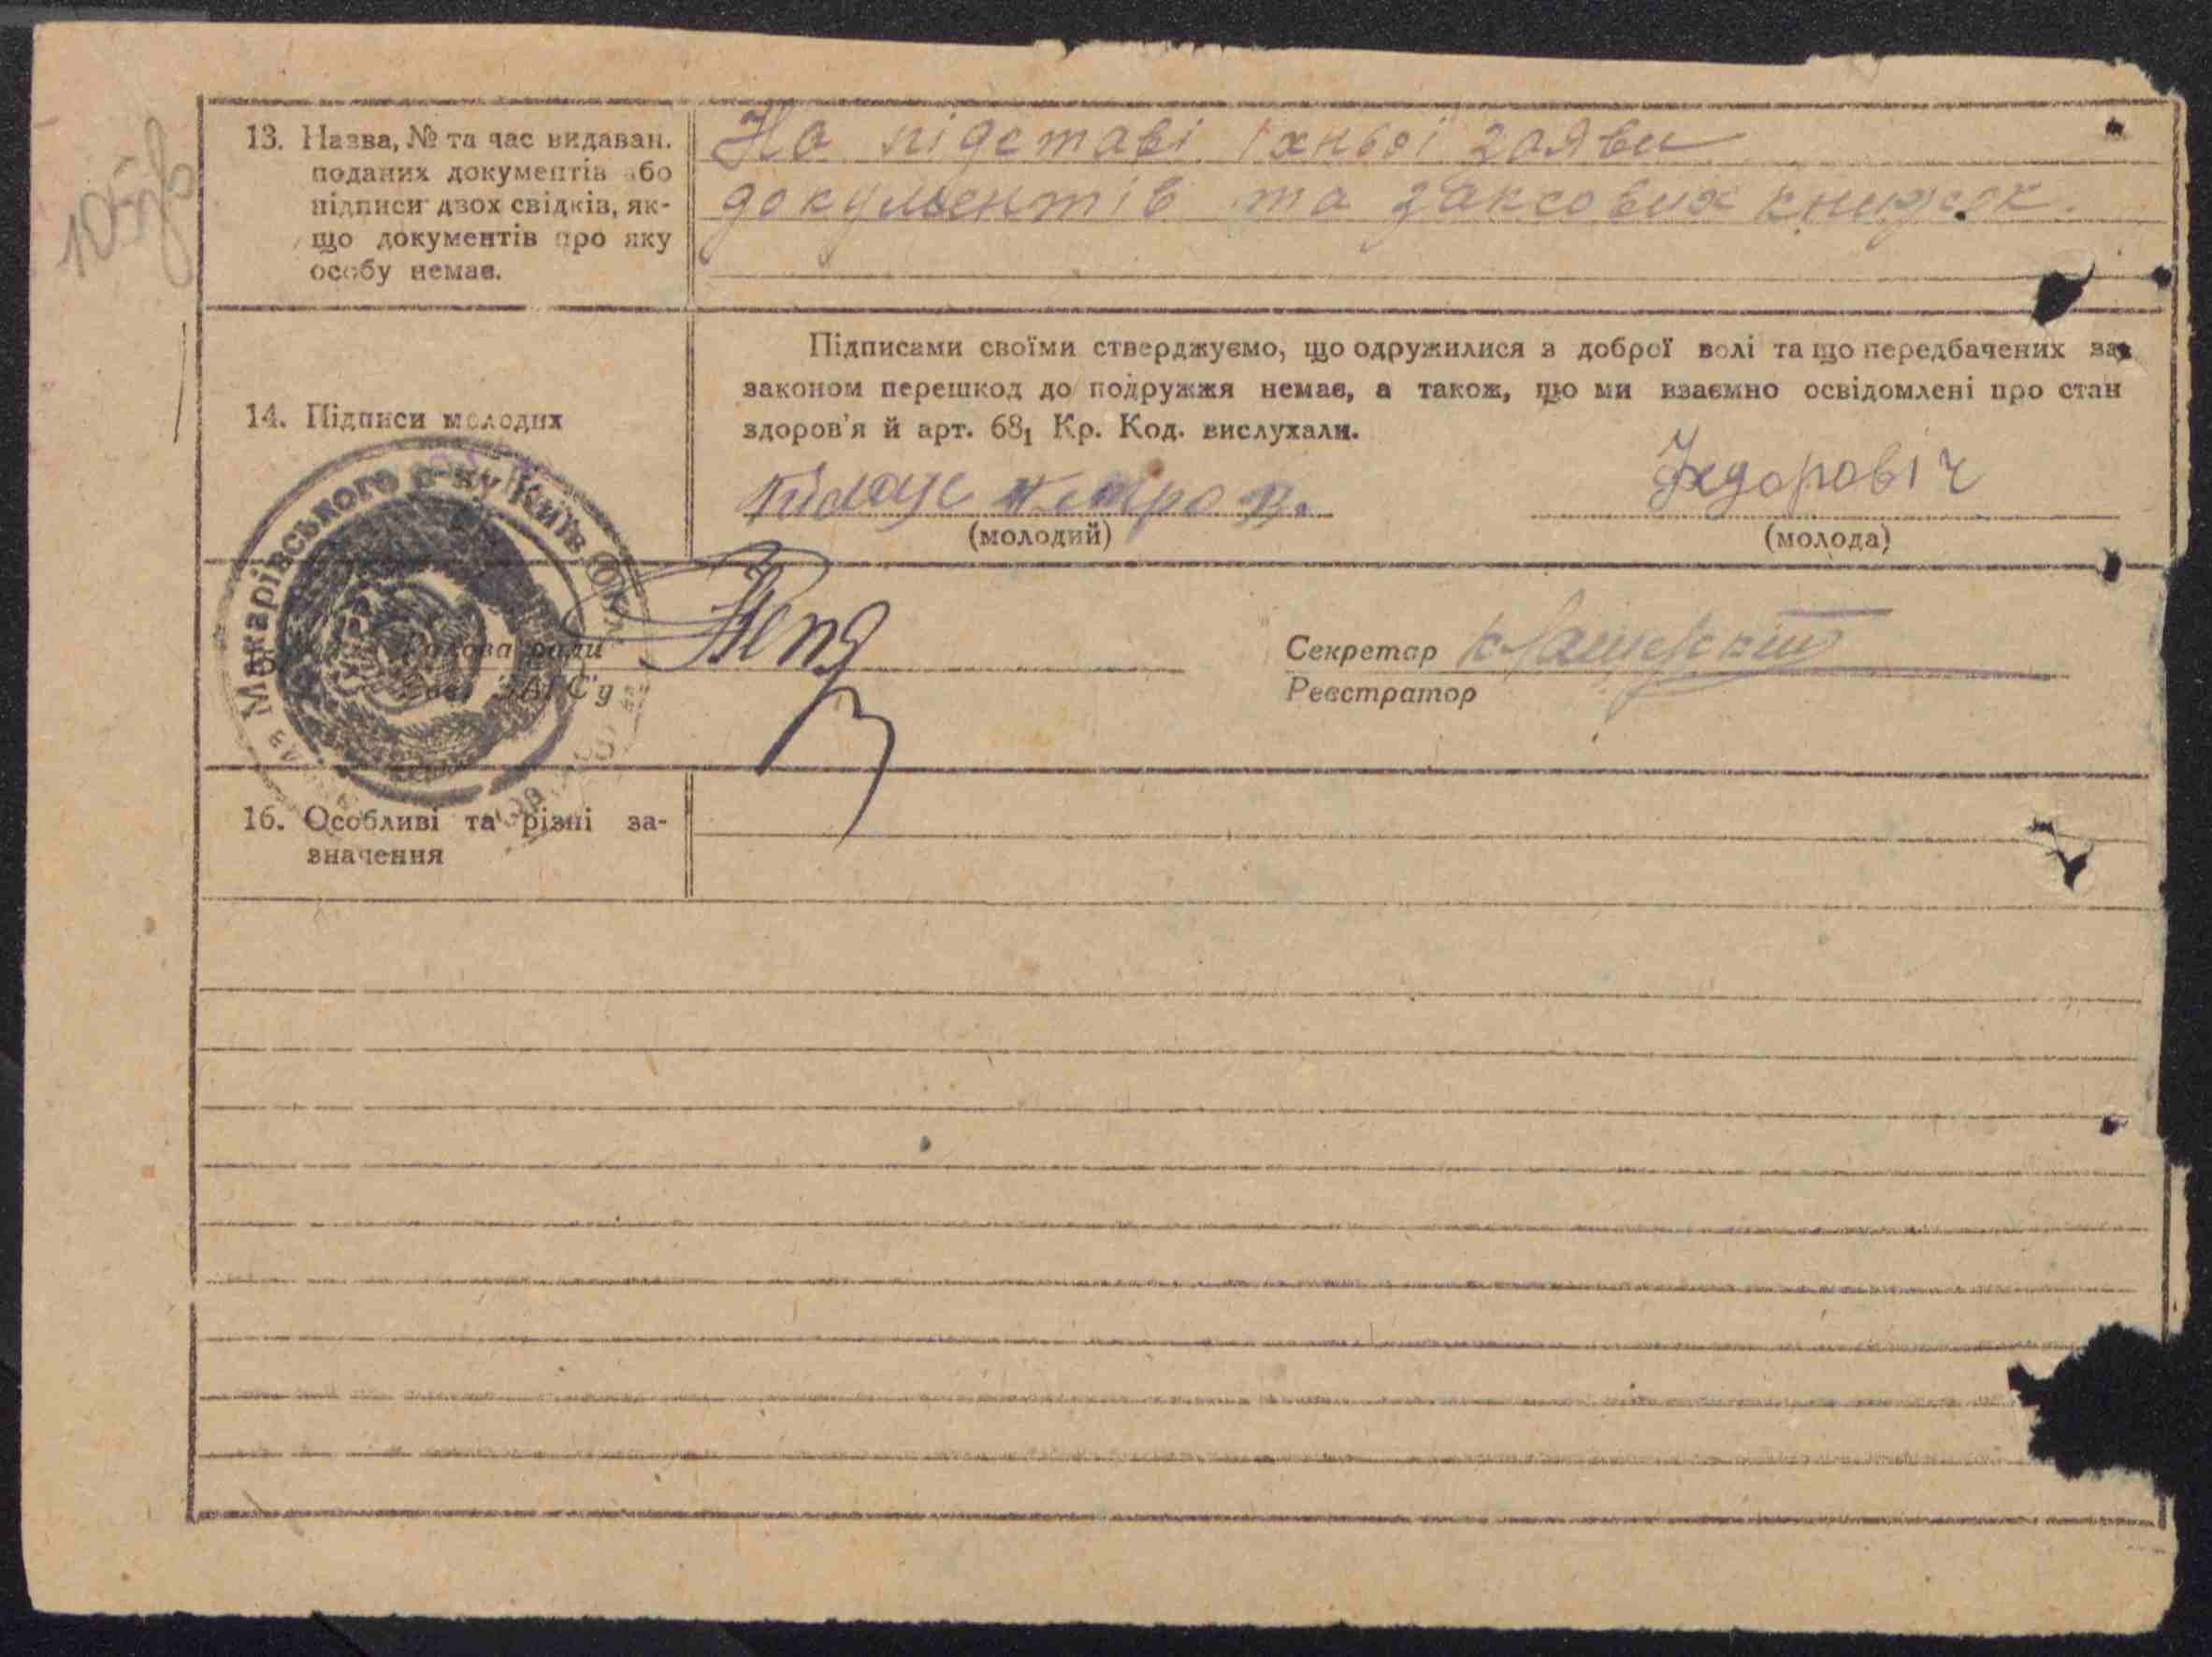 13. Назва, № та час видаван.
поданих документів або
підписи двох свідків, як-
що документів про яку
особу немає.
На підставі їхньої заяви
документів та загсових книжок.
14. Підписи молодих
Підписами своїми стверджуємо, що одружилися з доброї волі та що передбачених за
законом перешкод до подружжя немає, а також, що ми взаємно освідомлені про стан
здоров'я й арт. 68₁ Кр. Код. вислухали.
Петро В.
Федоровіч
(молодий)
(молода)
Макарівського р-ну Київ
Голова ради
Секретар
Зав. ЗАГС'у
Реєстратор
16. Особливі та різні за-
значення